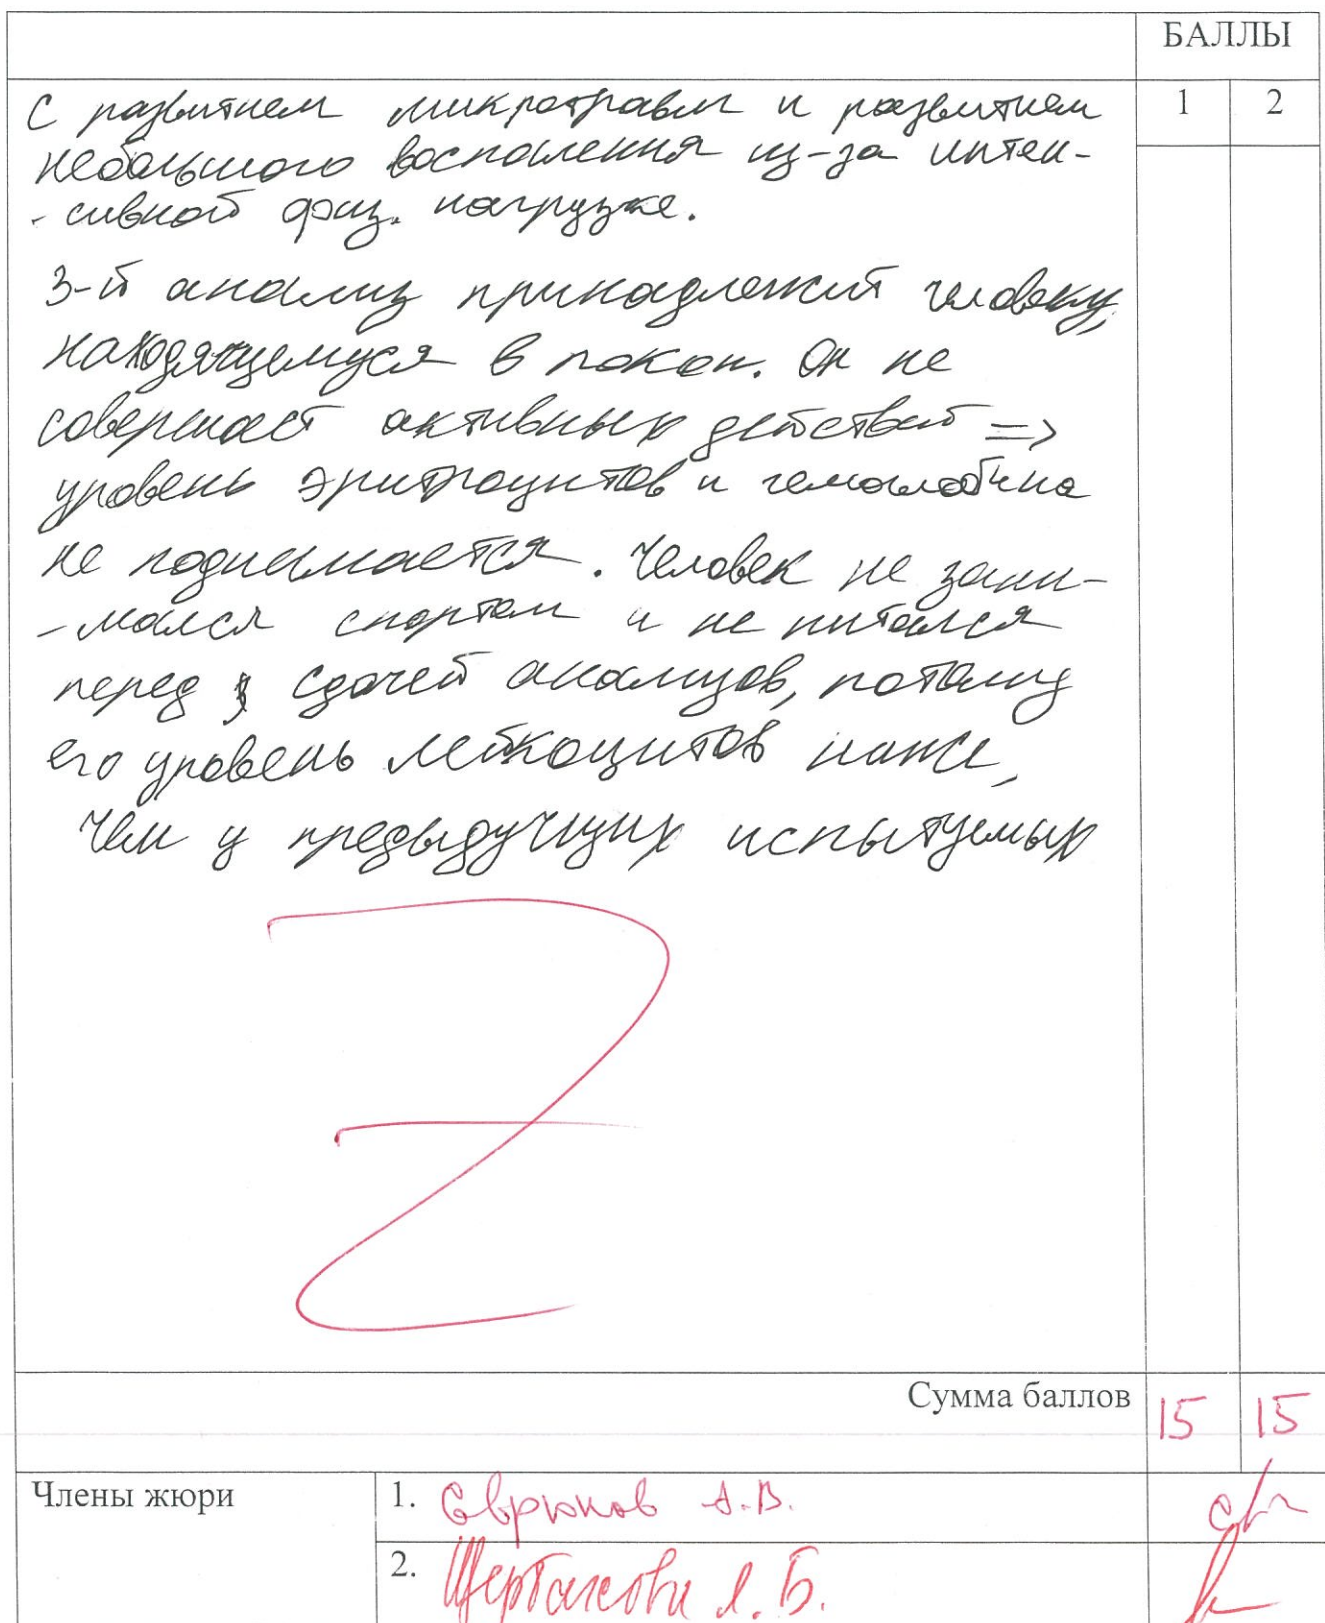 БАЛЛЫ
1 2
С развитием микротравм и развитием
небольшого воспаления из-за интен-
-сивной физ. нагрузке.
3-й анализ принадлежит человеку,
находящемуся в покои. Он не
совершает активных действий =>
уровень эритроцитов и гемоглобина
не поднимается. Человек не зани-
-мался спортом и не питался
перед сдачей анализов, потому
его уровень лейкоцитов ниже,
чем у предыдущих испытуемых
Сумма баллов 15 15
Члены жюри
1. Севрюков А.В.
2. Щербакова Л.Б.